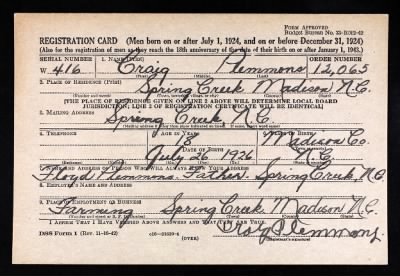 Form Approved
Budget Bureau No. 33-R012-42
REGISTRATION CARD (Men born on or after July 1, 1924, and on or before December 31, 1924)
(Also for the registration of men as they reach the 18th anniversary of the date of their birth on or after January 1, 1943.)
SERIAL NUMBER 1. NAME (Print) ORDER NUMBER
W 416 Craig Plemmons 12,065
(First) (Middle) (Last)
2. PLACE OF RESIDENCE (Print)
Spring Creek Madison N.C.
[THE PLACE OF RESIDENCE GIVEN ON LINE 2 ABOVE WILL DETERMINE LOCAL BOARD
JURISDICTION; LINE 2 OF REGISTRATION CERTIFICATE WILL BE IDENTICAL]
3. MAILING ADDRESS
Spring Creek N.C.
4. TELEPHONE 5. AGE IN YEARS 6. PLACE OF BIRTH
18 Madison Co.
DATE OF BIRTH
July 26 1926 N.C.
7. NAME AND ADDRESS OF PERSON WHO WILL ALWAYS KNOW YOUR ADDRESS
Floyd Plemmons. Father. Spring Creek, N.C.
8. EMPLOYER'S NAME AND ADDRESS
9. PLACE OF EMPLOYMENT OR BUSINESS
Farming Spring Creek. Madison N.C.
I AFFIRM THAT I HAVE VERIFIED ABOVE ANSWERS AND THAT THEY ARE TRUE.
DSS Form 1 (Rev. 11-16-42) (OVER) Craig Plemmons
(Registrant's signature)